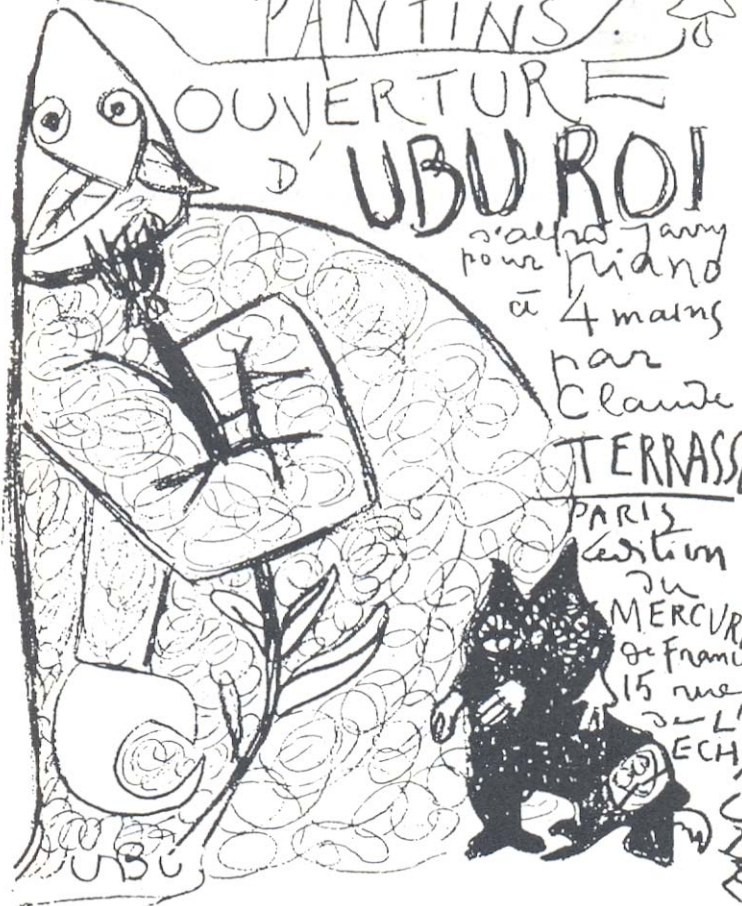 PANTINS
OUVERTURE
D' UBU ROI
d'alfred Jarry
pour piano
à 4 mains
par
Claude
TERRASS
PARIS
édition
du
MERCVR
de Franc
15 rue
de L'
ECH
UBU